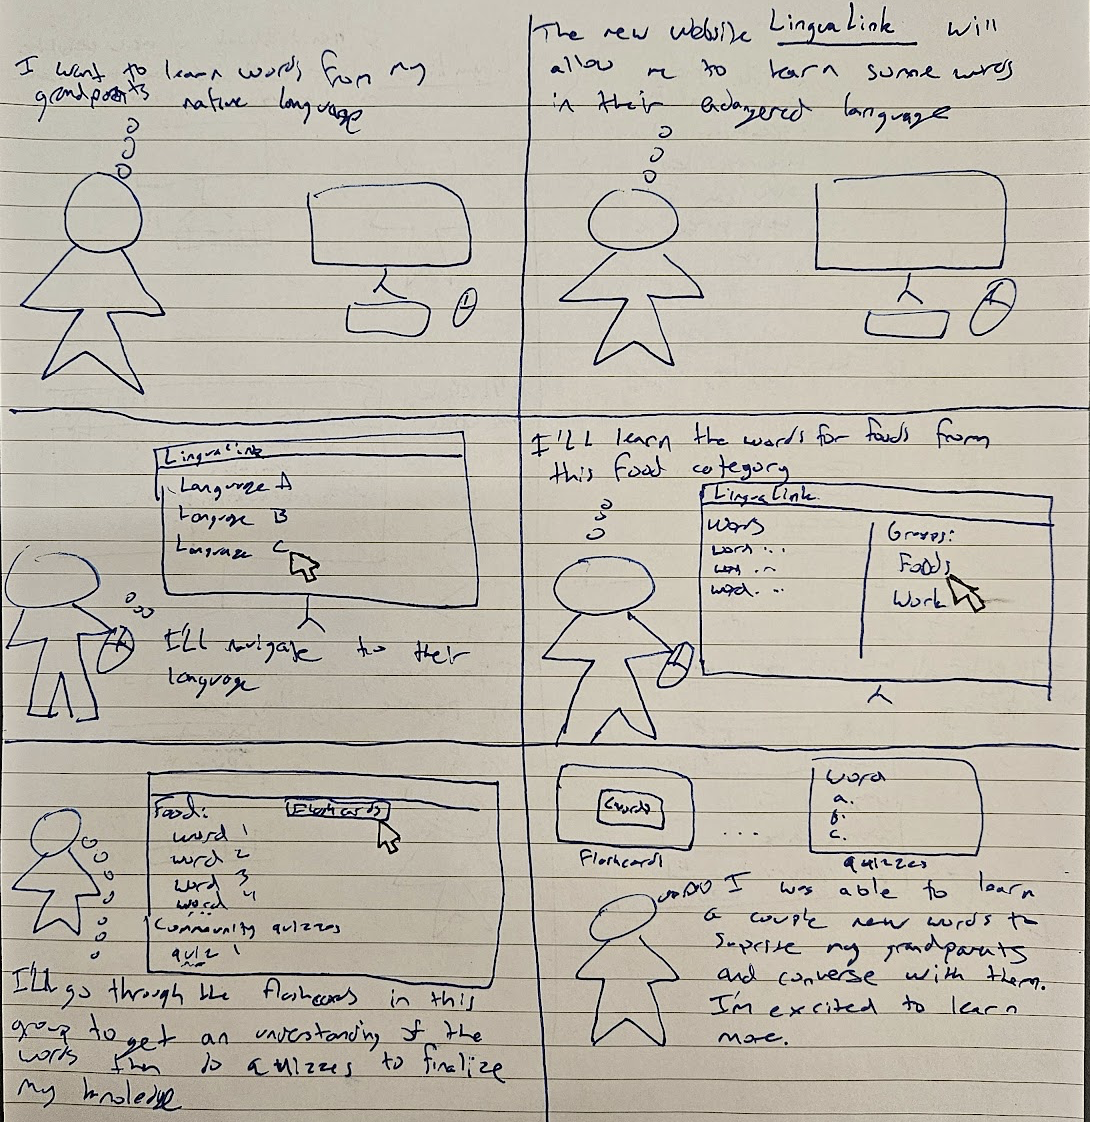 I want to learn words from my
grandparents native language
The new website LinguaLink will
allow me to learn some words
in their endagered language
LinguaLink
Language A
Language B
Language C
I'll navigate to their
language
I'll learn the words for foods from
this food category
LinguaLink
Words
word ...
word ...
word. ...
Groups:
Foods
Work
Food:
Flashcards
word 1
word 2
word 3
word 4
Community quizzes
quiz 1
I'll go through the flashcards in this
group to get an understanding of the
words then do quizzes to finalize
my knoledge
Flashcards
...
word
a.
b.
c.
quizzes
I was able to learn
a couple new words to
suprise my grandparents
and converse with them.
I'm excited to learn
more.